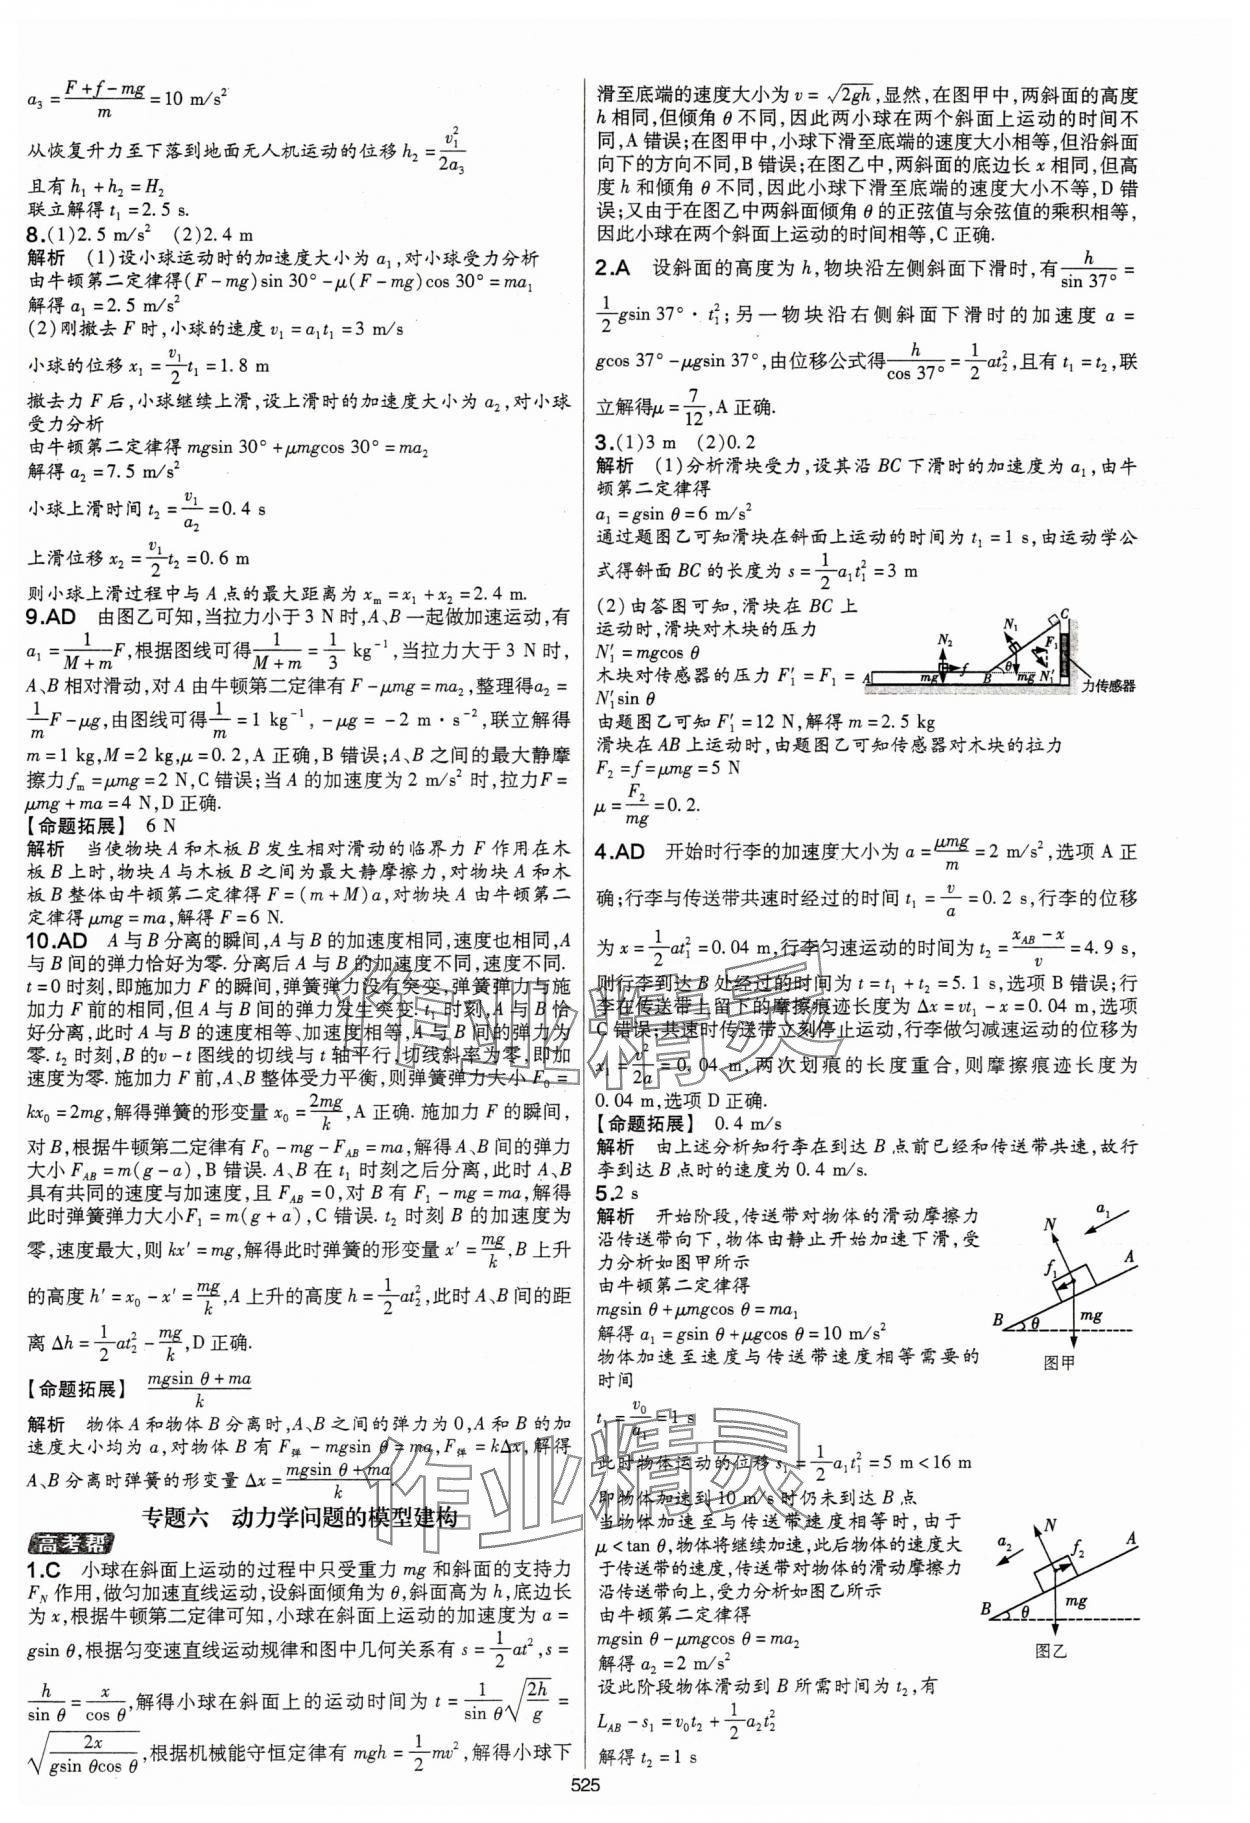 a₃=(F+f-mg)/m=10 m/s²
从恢复升力至下落到地面无人机运动的位移 h₂=v₁²/(2a₃)
且有 h₁+h₂=H₂
联立解得 t₁=2.5 s.
8.(1)2.5 m/s² (2)2.4 m
解析 (1)设小球运动时的加速度大小为 a₁,对小球受力分析
由牛顿第二定律得(F-mg)sin 30°-μ(F-mg)cos 30°=ma₁
解得 a₁=2.5 m/s²
(2)刚撤去 F 时,小球的速度 v₁=a₁t₁=3 m/s
小球的位移 x₁=(v₁/2)t₁=1.8 m
撤去力 F 后,小球继续上滑,设上滑时的加速度大小为 a₂,对小球
受力分析
由牛顿第二定律得 mgsin 30°+μmgcos 30°=ma₂
解得 a₂=7.5 m/s²
小球上滑时间 t₂=v₁/a₂=0.4 s
上滑位移 x₂=(v₁/2)t₂=0.6 m
则小球上滑过程中与 A 点的最大距离为 xₘ=x₁+x₂=2.4 m.
9.AD 由图乙可知,当拉力小于 3 N 时,A、B 一起做加速运动,有
a₁=1/(M+m)F,根据图线可得1/(M+m)=1/3 kg⁻¹,当拉力大于 3 N 时,
A、B 相对滑动,对 A 由牛顿第二定律有 F-μmg=ma₂,整理得a₂=
(1/m)F-μg,由图线可得1/m=1 kg⁻¹,-μg=-2 m·s⁻²,联立解得
m=1 kg,M=2 kg,μ=0.2,A 正确,B 错误;A、B 之间的最大静摩
擦力fₘ=μmg=2 N,C 错误;当 A 的加速度为 2 m/s² 时,拉力F=
μmg+ma=4 N,D 正确.
【命题拓展】 6 N
解析 当使物块 A 和木板 B 发生相对滑动的临界力 F 作用在木
板 B 上时,物块 A 与木板 B 之间为最大静摩擦力,对物块 A 和木
板 B 整体由牛顿第二定律得 F=(m+M)a,对物块 A 由牛顿第二
定律得 μmg=ma,解得 F=6 N.
10.AD A 与 B 分离的瞬间,A 与 B 的加速度相同,速度也相同,A
与 B 间的弹力恰好为零. 分离后 A 与 B 的加速度不同,速度不同.
t=0 时刻,即施加力 F 的瞬间,弹簧弹力没有突变,弹簧弹力与施
加力 F 前的相同,但 A 与 B 间的弹力发生突变. t₁ 时刻,A 与 B 恰
好分离,此时 A 与 B 的速度相等、加速度相等,A 与 B 间的弹力为
零. t₂ 时刻,B 的v-t 图线的切线与 t 轴平行,切线斜率为零,即加
速度为零. 施加力 F 前,A、B 整体受力平衡,则弹簧弹力大小 F₀=
kx₀=2mg,解得弹簧的形变量 x₀=2mg/k,A 正确. 施加力 F 的瞬间,
对 B,根据牛顿第二定律有 F₀-mg-F_AB=ma,解得 A、B 间的弹力
大小 F_AB=m(g-a),B 错误. A、B 在 t₁ 时刻之后分离,此时 A、B
具有共同的速度与加速度,且 F_AB=0,对 B 有 F₁-mg=ma,解得
此时弹簧弹力大小F₁=m(g+a),C 错误. t₂ 时刻 B 的加速度为
零,速度最大,则 kx′=mg,解得此时弹簧的形变量 x′=mg/k,B 上升
的高度 h′=x₀-x′=mg/k,A 上升的高度 h=(1/2)at₂²,此时 A、B 间的距
离 Δh=(1/2)at₂²-mg/k,D 正确.
【命题拓展】 (mgsin θ+ma)/k
解析 物体 A 和物体 B 分离时,A、B 之间的弹力为 0,A 和 B 的加
速度大小均为 a,对物体 B 有 F弹-mgsin θ=ma,F弹=kΔx,解得
A、B 分离时弹簧的形变量 Δx=(mgsin θ+ma)/k
专题六 动力学问题的模型建构
高考帮
1.C 小球在斜面上运动的过程中只受重力 mg 和斜面的支持力
F_N 作用,做匀加速直线运动,设斜面倾角为 θ,斜面高为 h,底边长
为 x,根据牛顿第二定律可知,小球在斜面上运动的加速度为 a=
gsin θ,根据匀变速直线运动规律和图中几何关系有 s=(1/2)at²,s=
h/sin θ=x/cos θ,解得小球在斜面上的运动时间为 t=(1/sin θ)√(2h/g)=
√(2x/(gsin θcos θ)),根据机械能守恒定律有 mgh=(1/2)mv²,解得小球下
滑至底端的速度大小为 v=√(2gh),显然,在图甲中,两斜面的高度
h 相同,但倾角 θ 不同,因此两小球在两个斜面上运动的时间不
同,A 错误;在图甲中,小球下滑至底端的速度大小相等,但沿斜面
向下的方向不同,B 错误;在图乙中,两斜面的底边长 x 相同,但高
度 h 和倾角 θ 不同,因此小球下滑至底端的速度大小不等,D 错
误;又由于在图乙中两斜面倾角 θ 的正弦值与余弦值的乘积相等,
因此小球在两个斜面上运动的时间相等,C 正确.
2.A 设斜面的高度为 h,物块沿左侧斜面下滑时,有h/sin 37°=
(1/2)gsin 37°·t₁²;另一物块沿右侧斜面下滑时的加速度 a=
gcos 37°-μgsin 37°,由位移公式得h/cos 37°=(1/2)at₂²,且有 t₁=t₂,联
立解得μ=7/12,A 正确.
3.(1)3 m (2)0.2
解析 (1)分析滑块受力,设其沿 BC 下滑时的加速度为 a₁,由牛
顿第二定律得
a₁=gsin θ=6 m/s²
通过题图乙可知滑块在斜面上运动的时间为 t₁=1 s,由运动学公
式得斜面 BC 的长度为 s=(1/2)a₁t₁²=3 m
(2)由答图可知,滑块在 BC 上
运动时,滑块对木块的压力
N₁′=mgcos θ
木块对传感器的压力 F₁′=F₁=
N₁′sin θ
A N₂ f mg B θ N₁ mg F₁ N₁′ C 力传感器
由题图乙可知 F₁′=12 N,解得 m=2.5 kg
滑块在 AB 上运动时,由题图乙可知传感器对木块的拉力
F₂=f=μmg=5 N
μ=F₂/mg=0.2.
4.AD 开始时行李的加速度大小为 a=μmg/m=2 m/s²,选项 A 正
确;行李与传送带共速时经过的时间 t₁=v/a=0.2 s,行李的位移
为 x=(1/2)at₁²=0.04 m,行李匀速运动的时间为 t₂=(x_AB-x)/v=4.9 s,
则行李到达 B 处经过的时间为 t=t₁+t₂=5.1 s,选项 B 错误;行
李在传送带上留下的摩擦痕迹长度为 Δx=vt₁-x=0.04 m,选项
C 错误;共速时传送带立刻停止运动,行李做匀减速运动的位移为
x₁=v²/(2a)=0.04 m,两次划痕的长度重合,则摩擦痕迹长度为
0.04 m,选项 D 正确.
【命题拓展】 0.4 m/s
解析 由上述分析知行李在到达 B 点前已经和传送带共速,故行
李到达 B 点时的速度为 0.4 m/s.
5.2 s
解析 开始阶段,传送带对物体的滑动摩擦力
沿传送带向下,物体由静止开始加速下滑,受
力分析如图甲所示
由牛顿第二定律得
mgsin θ+μmgcos θ=ma₁
解得 a₁=gsin θ+μgcos θ=10 m/s²
物体加速至速度与传送带速度相等需要的
时间
N a₁ A f₁ B θ mg
图甲
t₁=v₀/a₁=1 s
此时物体运动的位移 s₁=(1/2)a₁t₁²=5 m<16 m
即物体加速到 10 m/s 时仍未到达 B 点
当物体加速至与传送带速度相等时,由于
μ<tan θ,物体将继续加速,此后物体的速度大
于传送带的速度,传送带对物体的滑动摩擦力
沿传送带向上,受力分析如图乙所示
由牛顿第二定律得
mgsin θ-μmgcos θ=ma₂
解得 a₂=2 m/s²
N a₂ A f₂ B θ mg
图乙
设此阶段物体滑动到 B 所需时间为 t₂,有
L_AB-s₁=v₀t₂+(1/2)a₂t₂²
解得 t₂=1 s
525
作业精灵
作业精灵